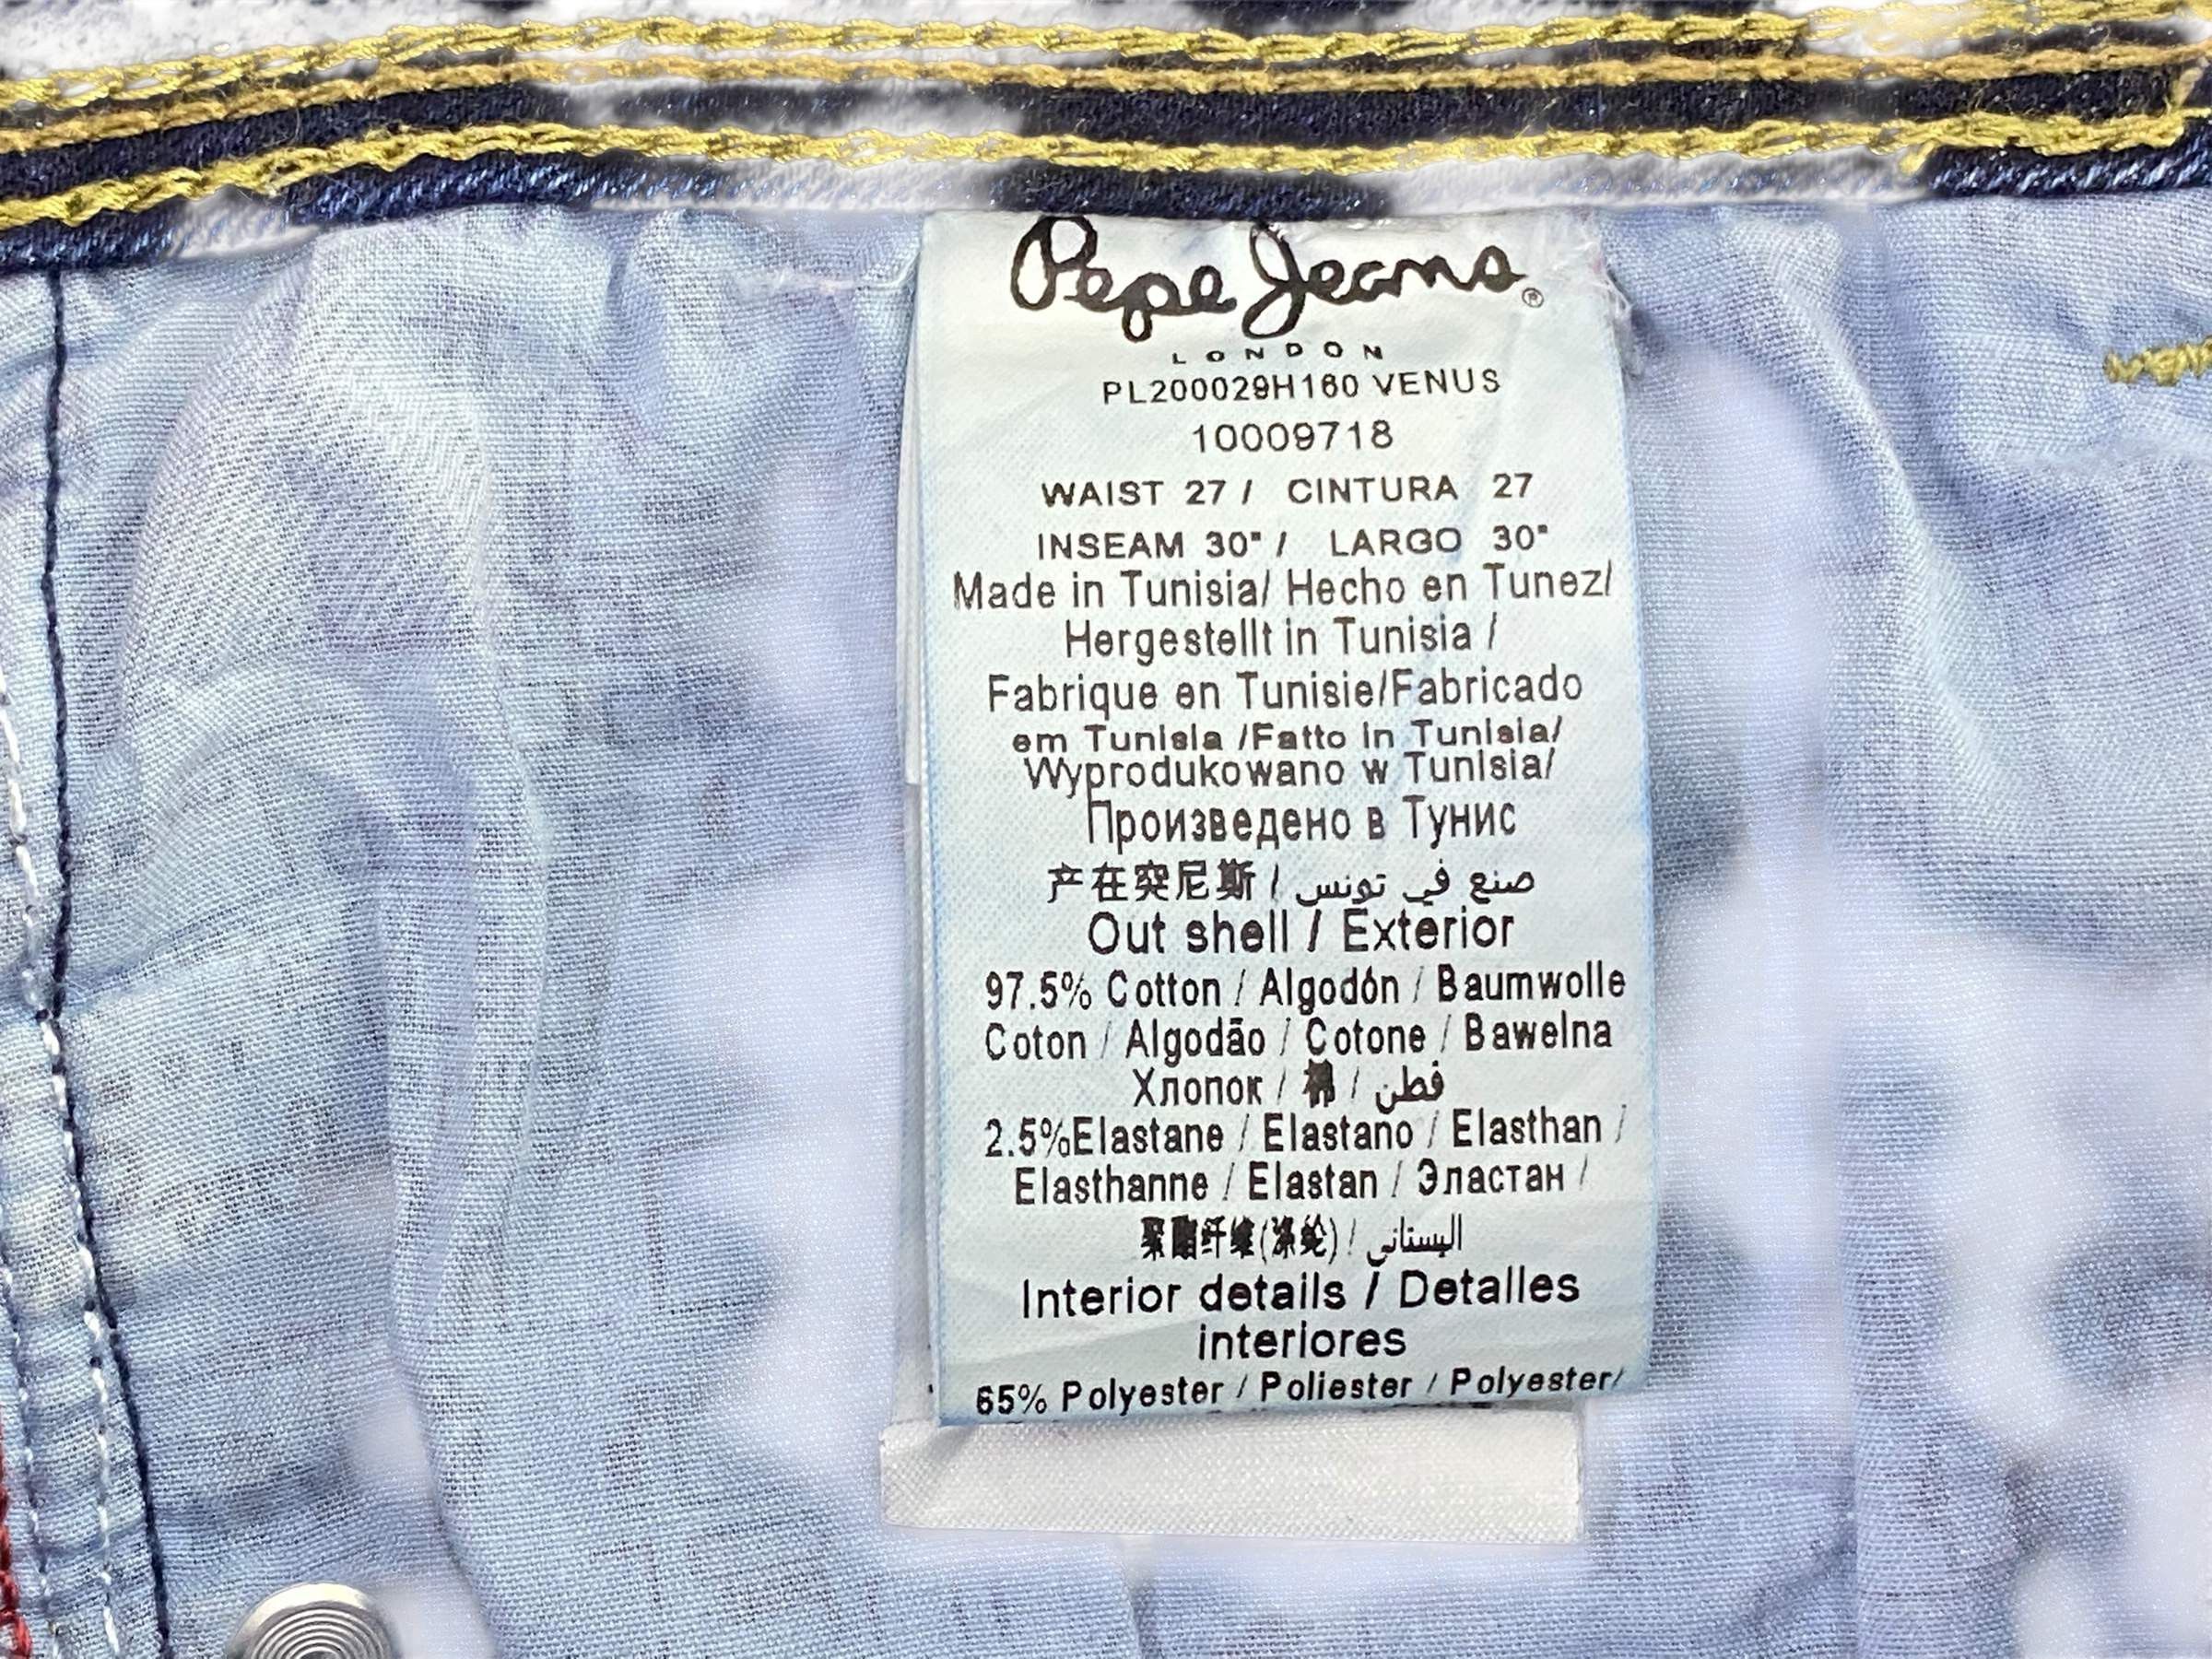 Pepe Jeans®
LONDON
PL200029H160 VENUS
10009718
WAIST 27 / CINTURA 27
INSEAM 30" / LARGO 30"
Made in Tunisia/ Hecho en Tunez/
Hergestellt in Tunisia /
Fabrique en Tunisie/Fabricado
em Tunisia /Fatto in Tunisia/
Wyprodukowano w Tunisia/
Произведено в Тунис
产在突尼斯 / صنع في تونس
Out shell / Exterior
97.5% Cotton / Algodón / Baumwolle
Coton / Algodão / Cotone / Bawelna
Хлопок / 棉 / قطن
2.5%Elastane / Elastano / Elasthan /
Elasthanne / Elastan / Эластан /
聚酯纤维(涤纶) / اليستاني
Interior details / Detalles
interiores
65% Polyester / Poliester / Polyester/